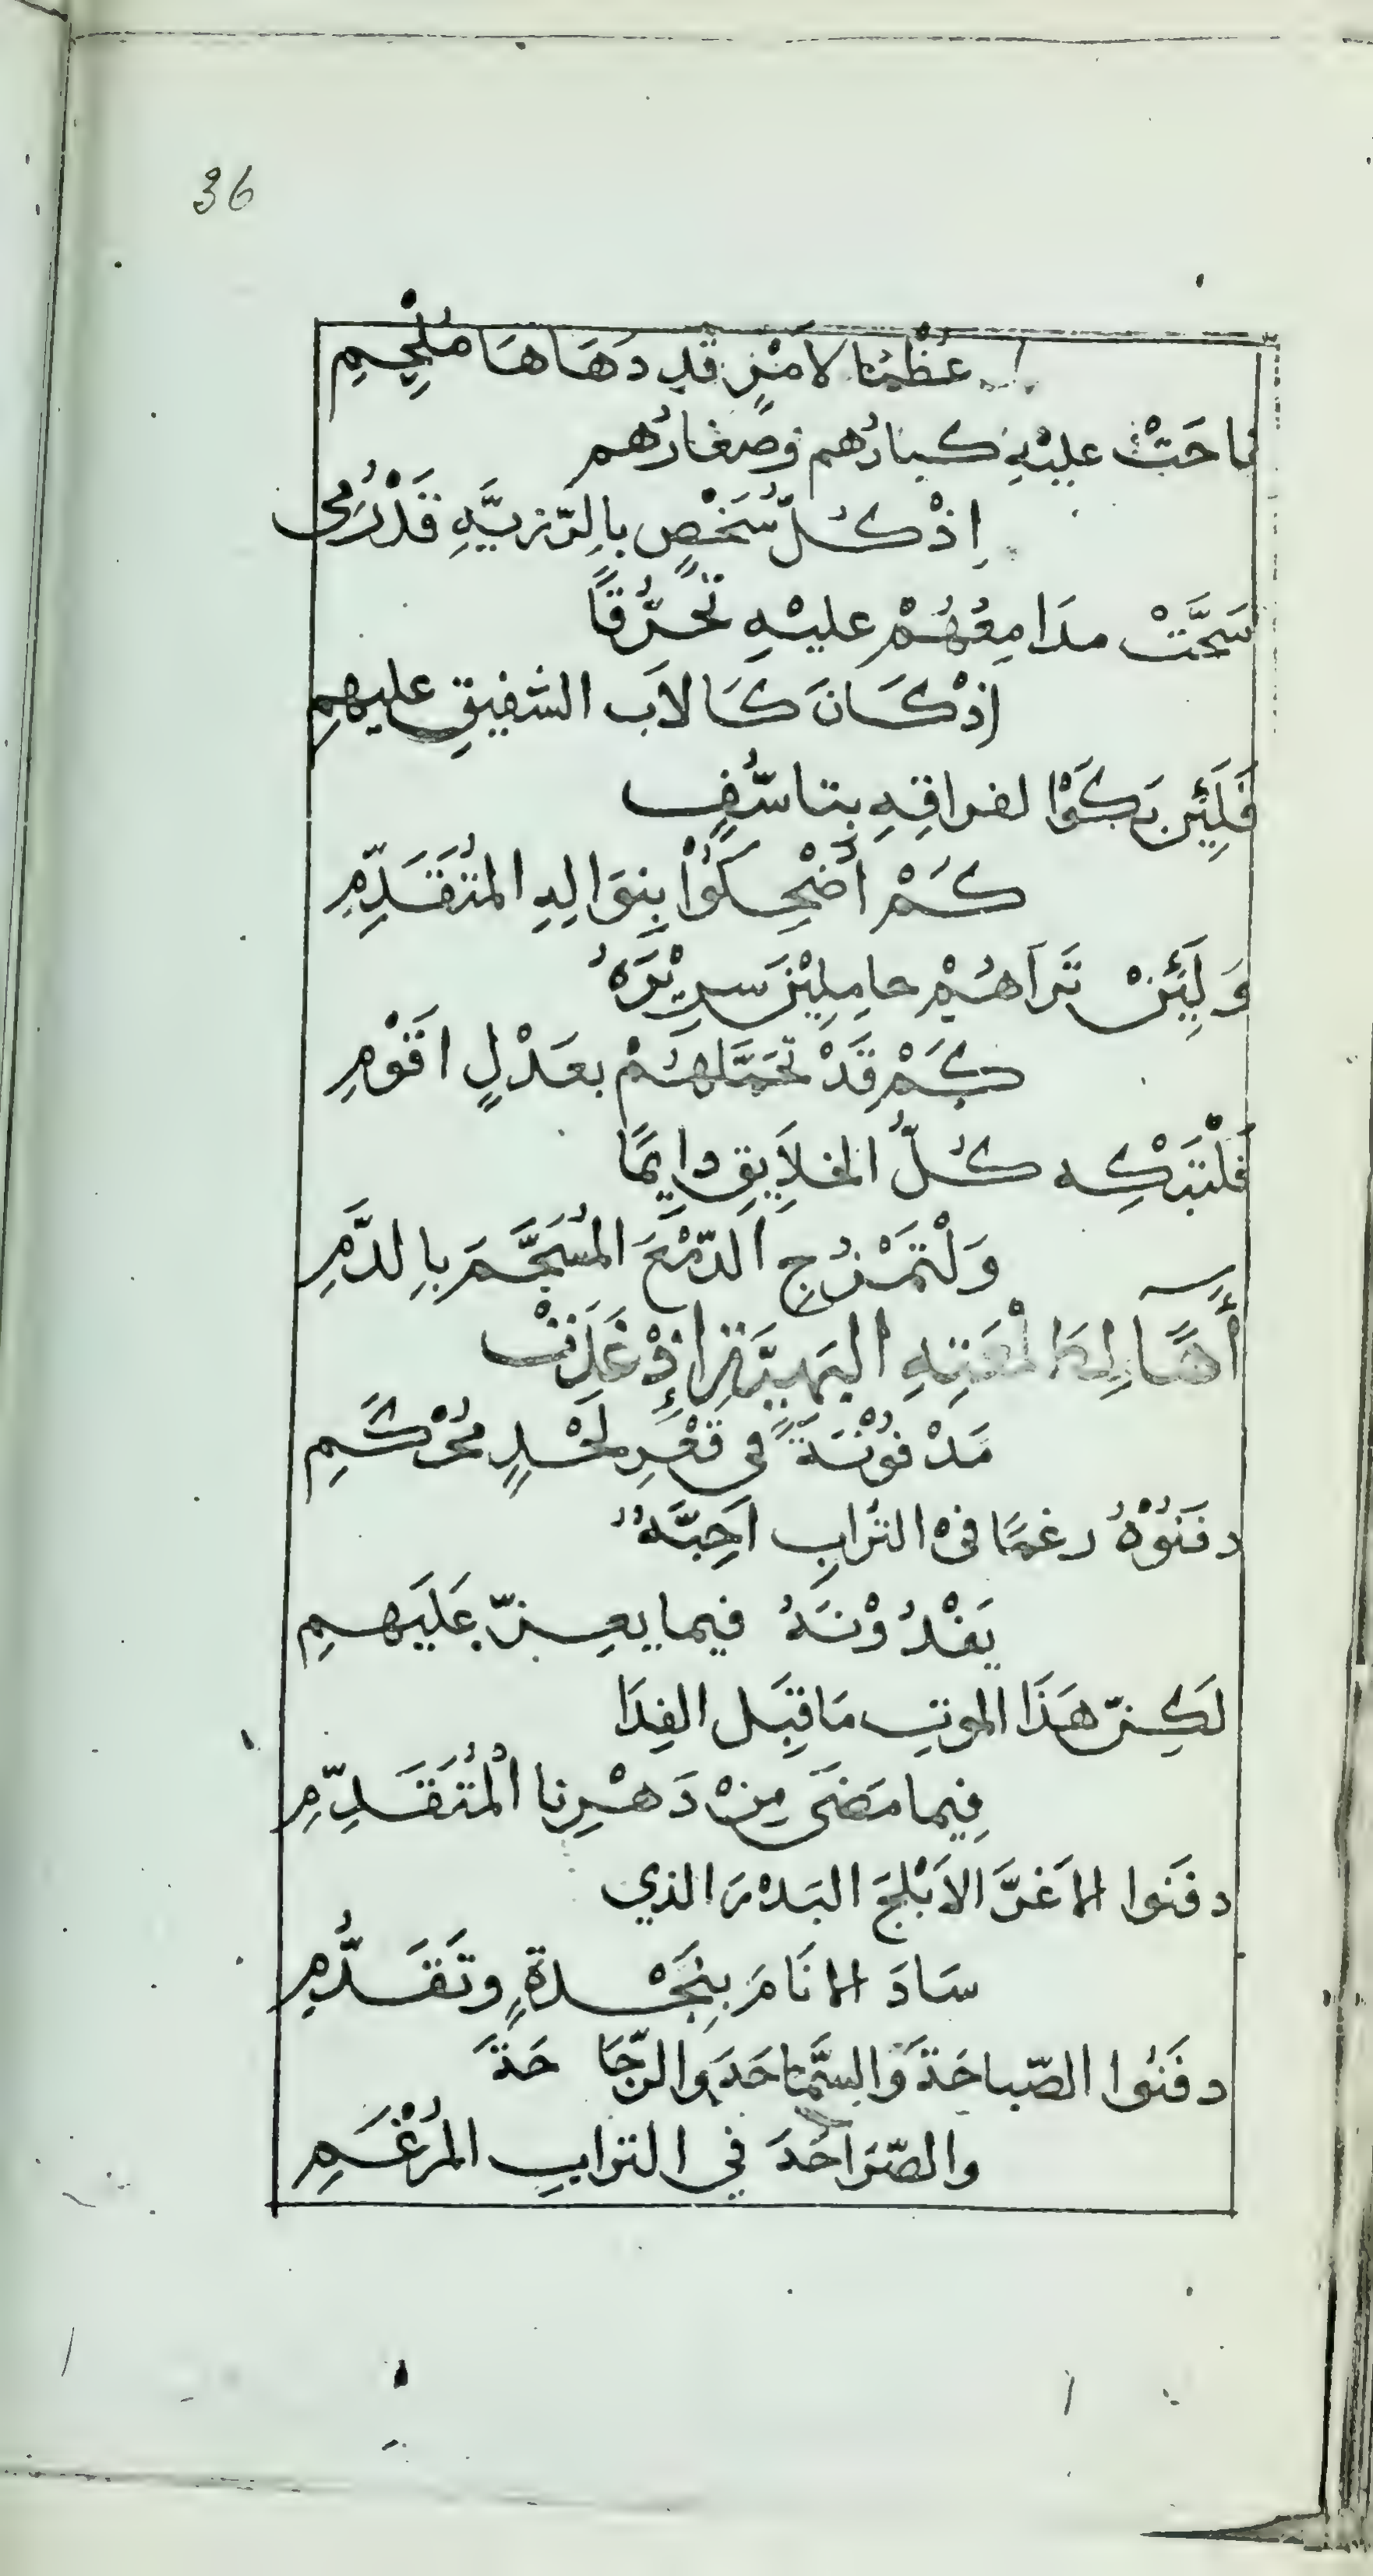 36
عُظْمًا لاَمْرٍ قَدِ دَهَاهَا مُلْجِمِ
نَاحَتْ عليْهِ كبارُهم وصغارُهم
اِذْ كُلُّ شَخْصٍ بِالرّزيَّةِ قَدْ رُمِى
سَحَّتْ مدَامِعُهُمْ عليْهِ تَحَرُّقًا
اِذْ كَانَ كَالاَبِ الشفيقِ عليهِمِ
فَلَئِن بَكَوْا لفراقِهِ بِتاسُّفٍ
كَمْ اُضْحِكُوْا بِنَوَالِهِ المُتَقَدِّمِ
وَلَئِنْ تَرَاهُمْ حامِلِيْنَ سرِيْرَهُ
كَمْ قَدْ تَحَمَّلَهُمْ بعَدْلٍ اقْوَمِ
فَلْتَبْكِهِ كُلُّ الخلاَيِقِ دايِمًا
وَلْتَمْزُجِ الدّمْعَ المُسَجَّمَ بِالدَّمِ
أٓهًا لِطَلْعَتِهِ البَهِيَّةِ إِذْ غَدَتْ
مَدْفُوْنَةً فى قَعْرِ لَحْدٍ مُحْكَمِ
دفَنُوْهُ رغمًا فى التُرَابِ اَحِبَّةٌ
يَفْدُوْنَهُ فيما يعِزّ عَلَيهِمِ
لَكِنّ هَذَا الموت مَا قَبِل الفِدَا
فِيما مَضَى مِنْ دَهْرِنا الْمُتَقَدِّمِ
دفَنوا الاَغرَّ الاَبْلَجَ البَدْرَ الذي
سَادَ الانَامَ بِنَجْدةٍ وتَقَدُّمِ
دفَنُوا الصّباحَةَ وَالسَّمَاحَةَ والرّجَاحَةَ
والصّرَاحَةَ في الترابِ المُرْغَمِ